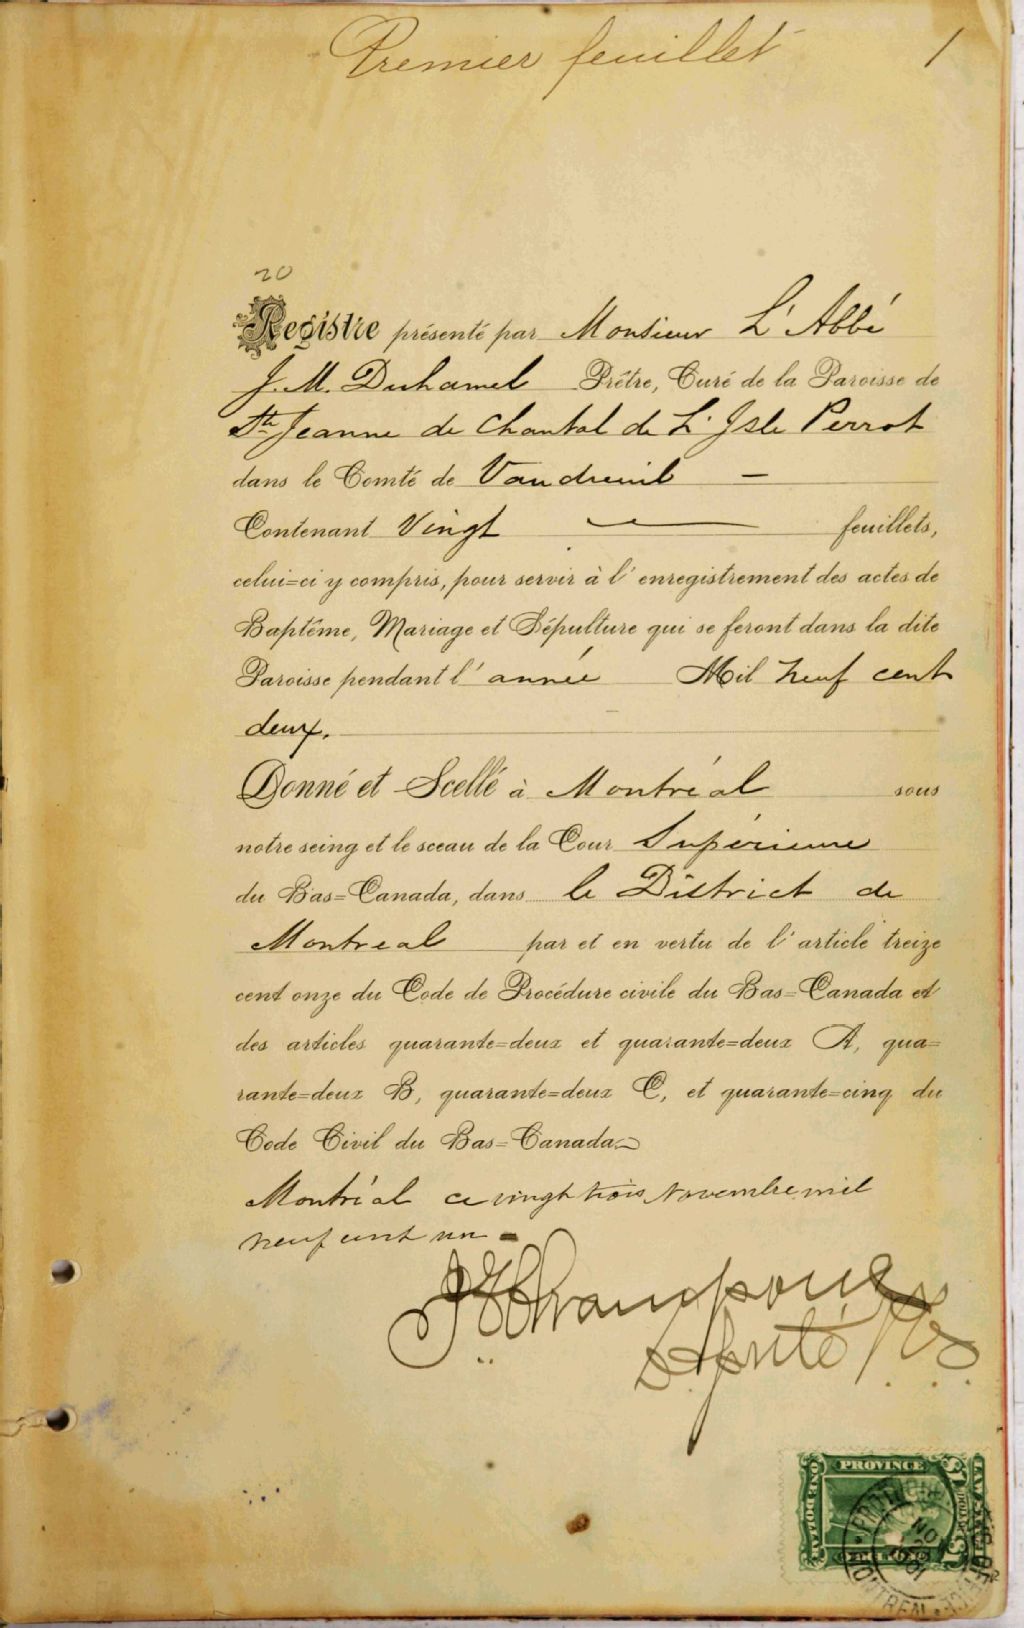 Premier feuillet 1
20
Registre présenté par Monsieur L'Abbé
J. M. Duhamel Prêtre, Curé de la Paroisse de
Ste Jeanne de Chantal de L'Isle Perrot
dans le Comté de Vaudreuil —
Contenant Vingt — feuillets,
celui=ci y compris, pour servir à l'enregistrement des actes de
Baptême, Mariage et Sépulture qui se feront dans la dite
Paroisse pendant l'année Mil neuf cent
deux.
Donné et Scellé à Montréal sous
notre seing et le sceau de la Cour Supérieure
du Bas=Canada, dans le District de
Montreal par et en vertu de l'article treize
cent onze du Code de Procédure civile du Bas=Canada et
des articles quarante=deux et quarante=deux A, qua=
rante=deux B, quarante=deux C, et quarante=cinq du
Code Civil du Bas=Canada.
Montréal ce vingt trois Novembre mil
neuf cent un -
Député
PROVINCE